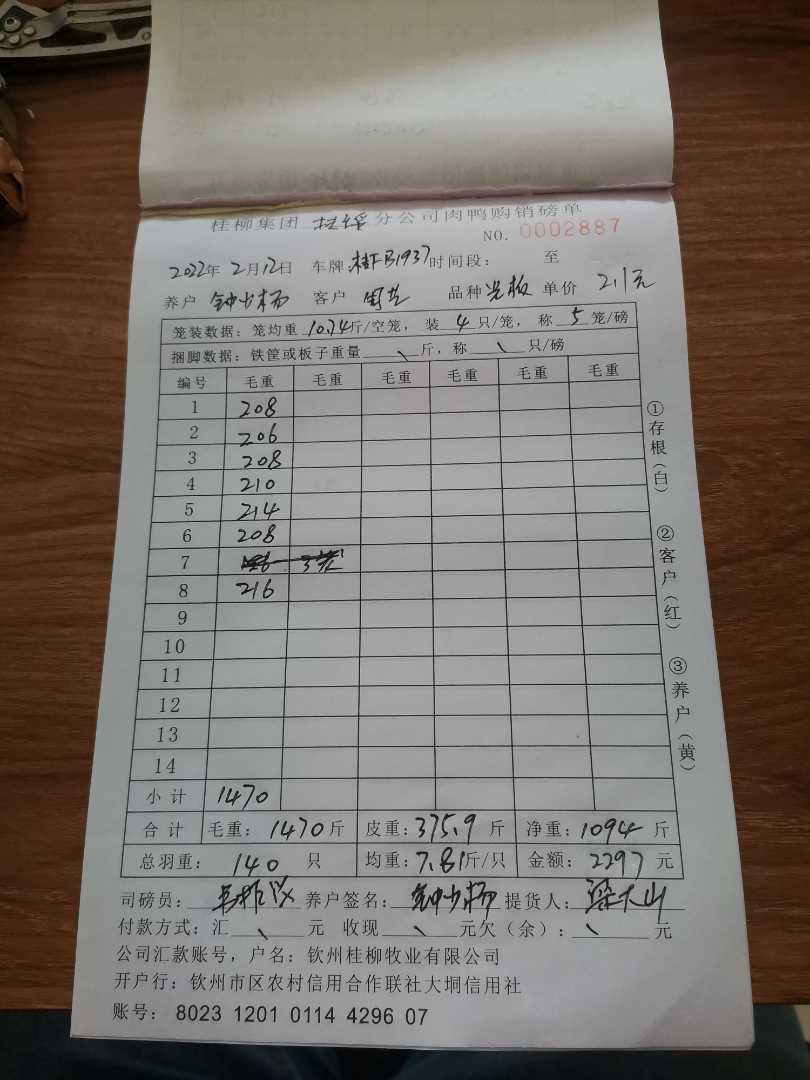 桂柳集团 分公司肉鸭购销磅单
NO. 0002887
2022年 2月12日 车牌:桂FB1937 时间段: 至
养户 钟少杨 客户 品种 光板 单价 2.1元
笼装数据: 笼均重 10.74斤/空笼, 装 4 只/笼, 称 5 笼/磅
捆脚数据: 铁筐或板子重量 \ 斤, 称 \ 只/磅
编号 毛重 毛重 毛重 毛重 毛重 毛重
1 208
2 206
3 208
4 210
5 214
6 208
7
8 216
9
10
11
12
13
14
小计 1470
合计 毛重: 1470斤 皮重: 375.9 斤 净重: 1094 斤
总羽重: 140 只 均重: 7.81斤/只 金额: 2297 元
司磅员: 养户签名: 钟少杨 提货人: 梁大山
付款方式: 汇 \ 元 收现 \ 元欠(余): \ 元
公司汇款账号, 户名: 钦州桂柳牧业有限公司
开户行: 钦州市区农村信用合作联社大垌信用社
账号: 8023 1201 0114 4296 07
①存根(白)
②客户(红)
③养户(黄)